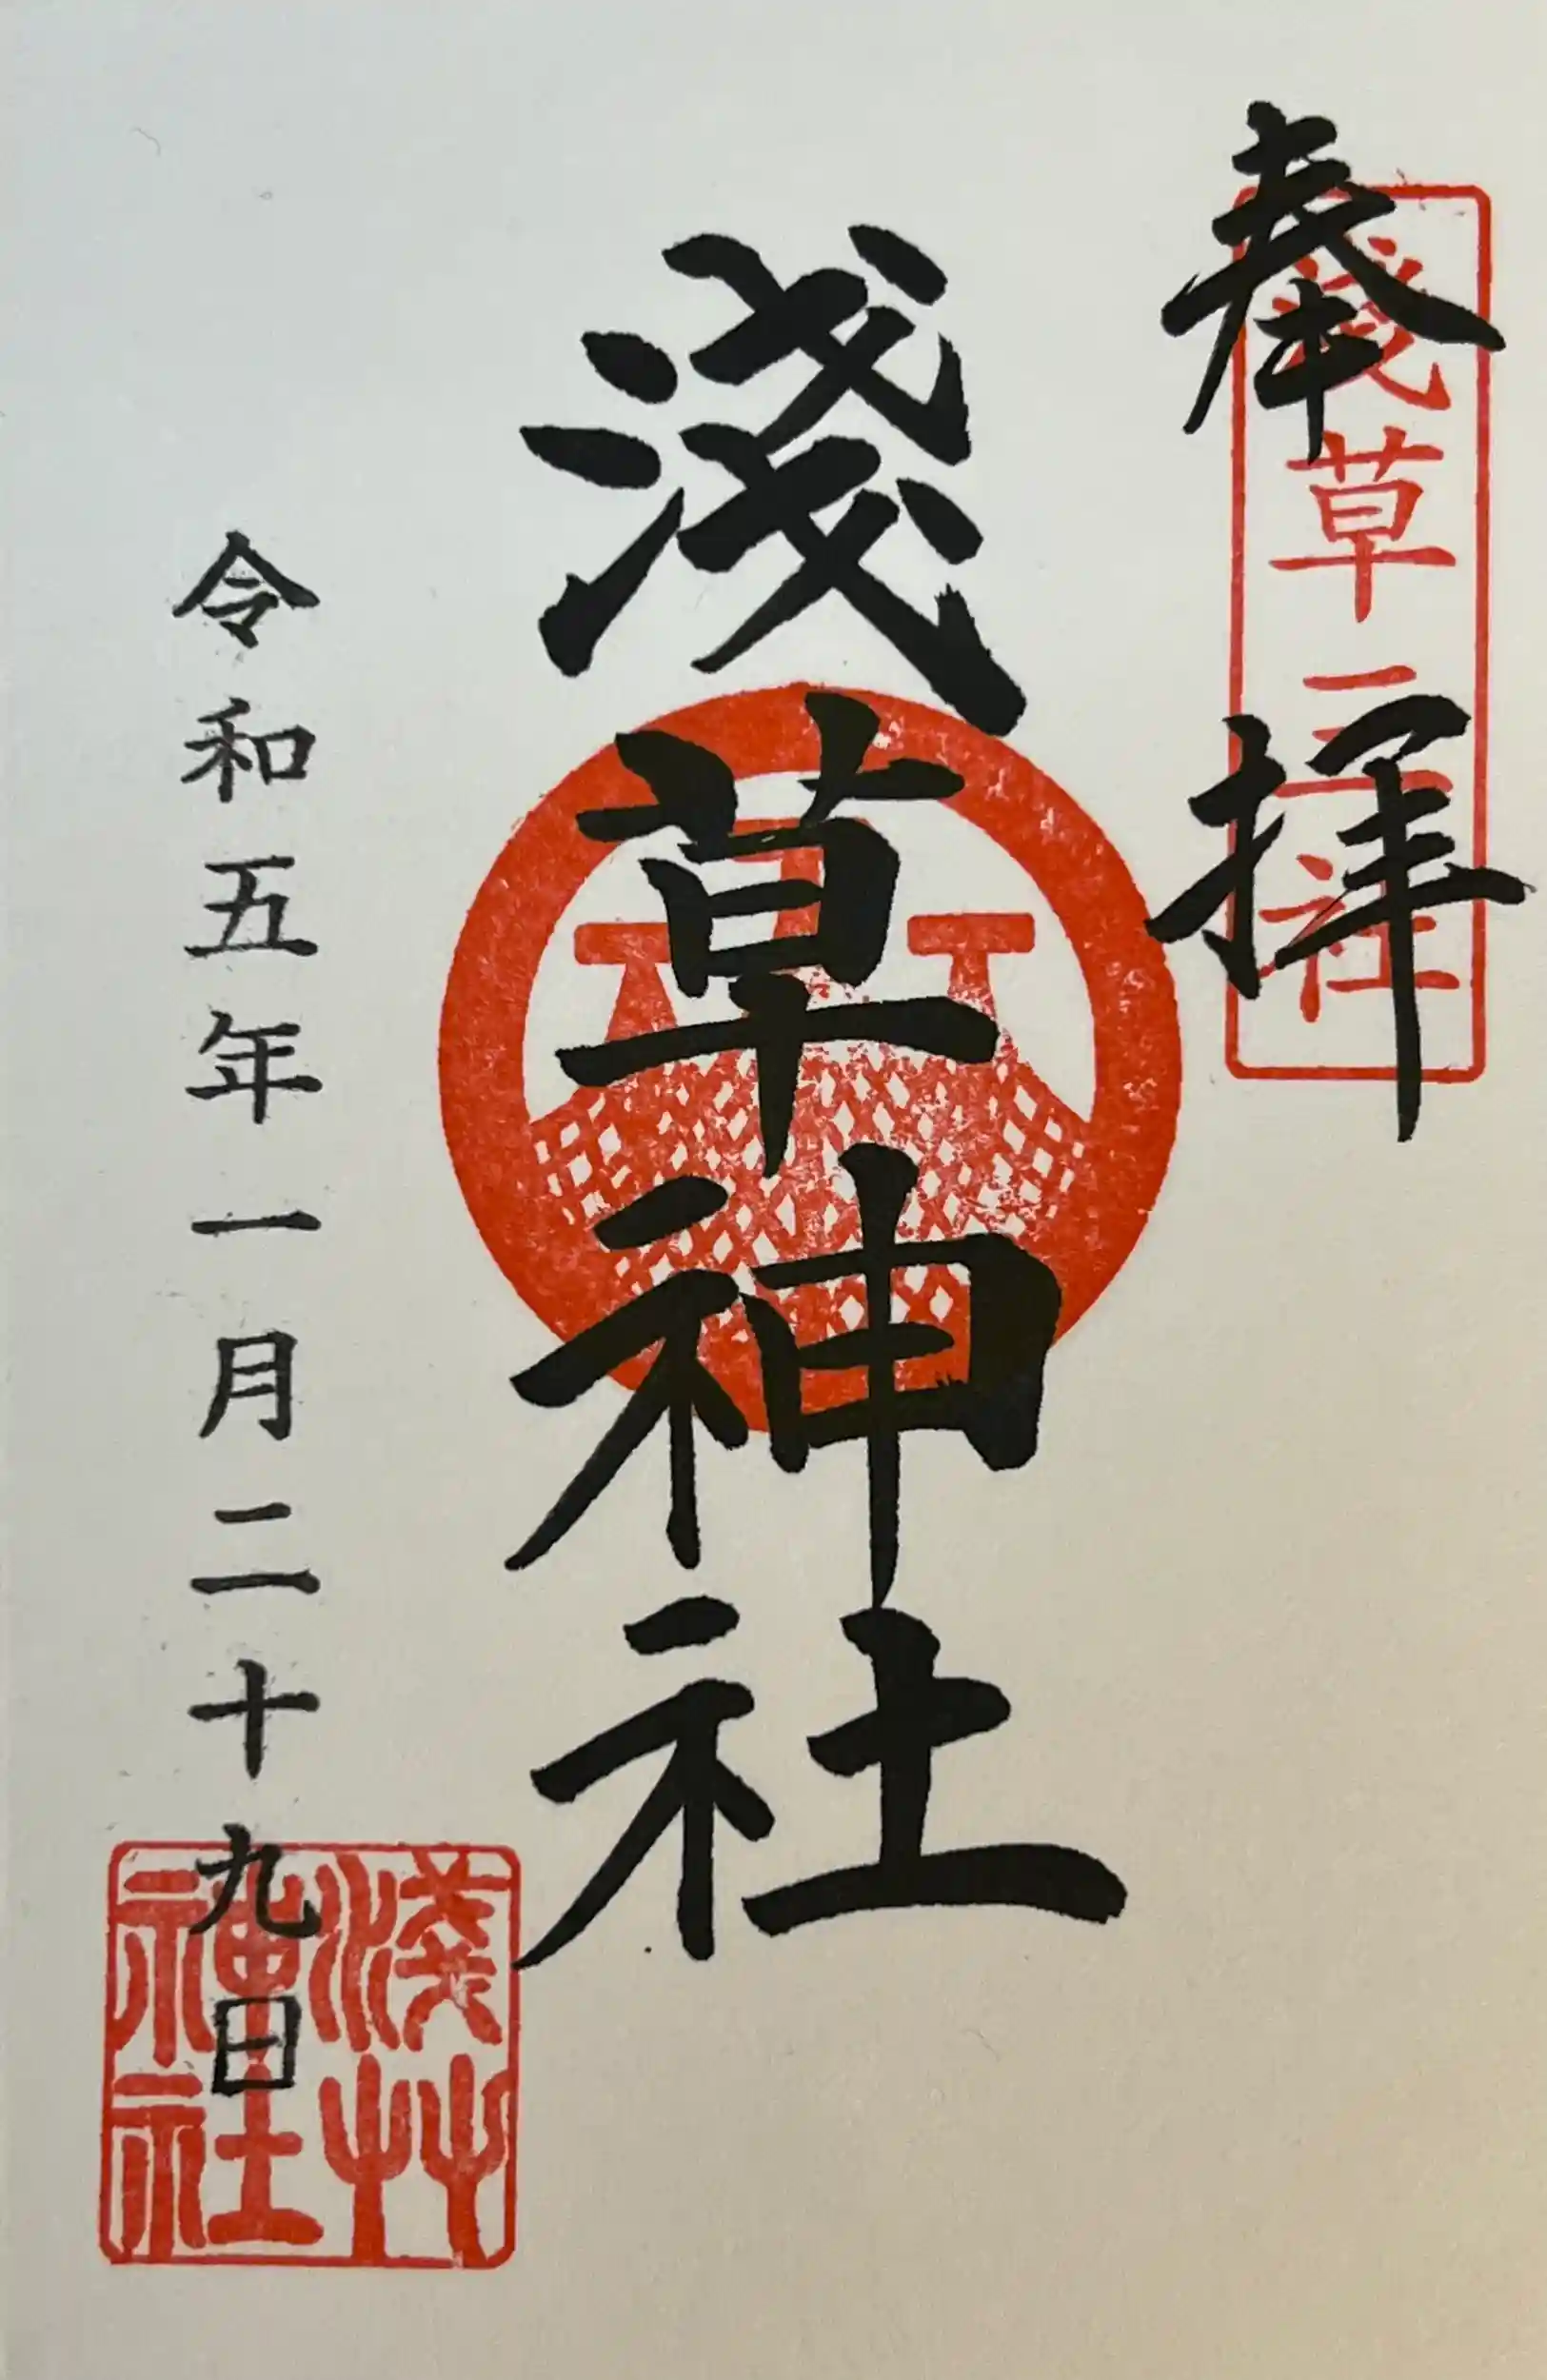 奉拝
淺草三社
淺草神社
令和五年一月二十九日
淺艸神社